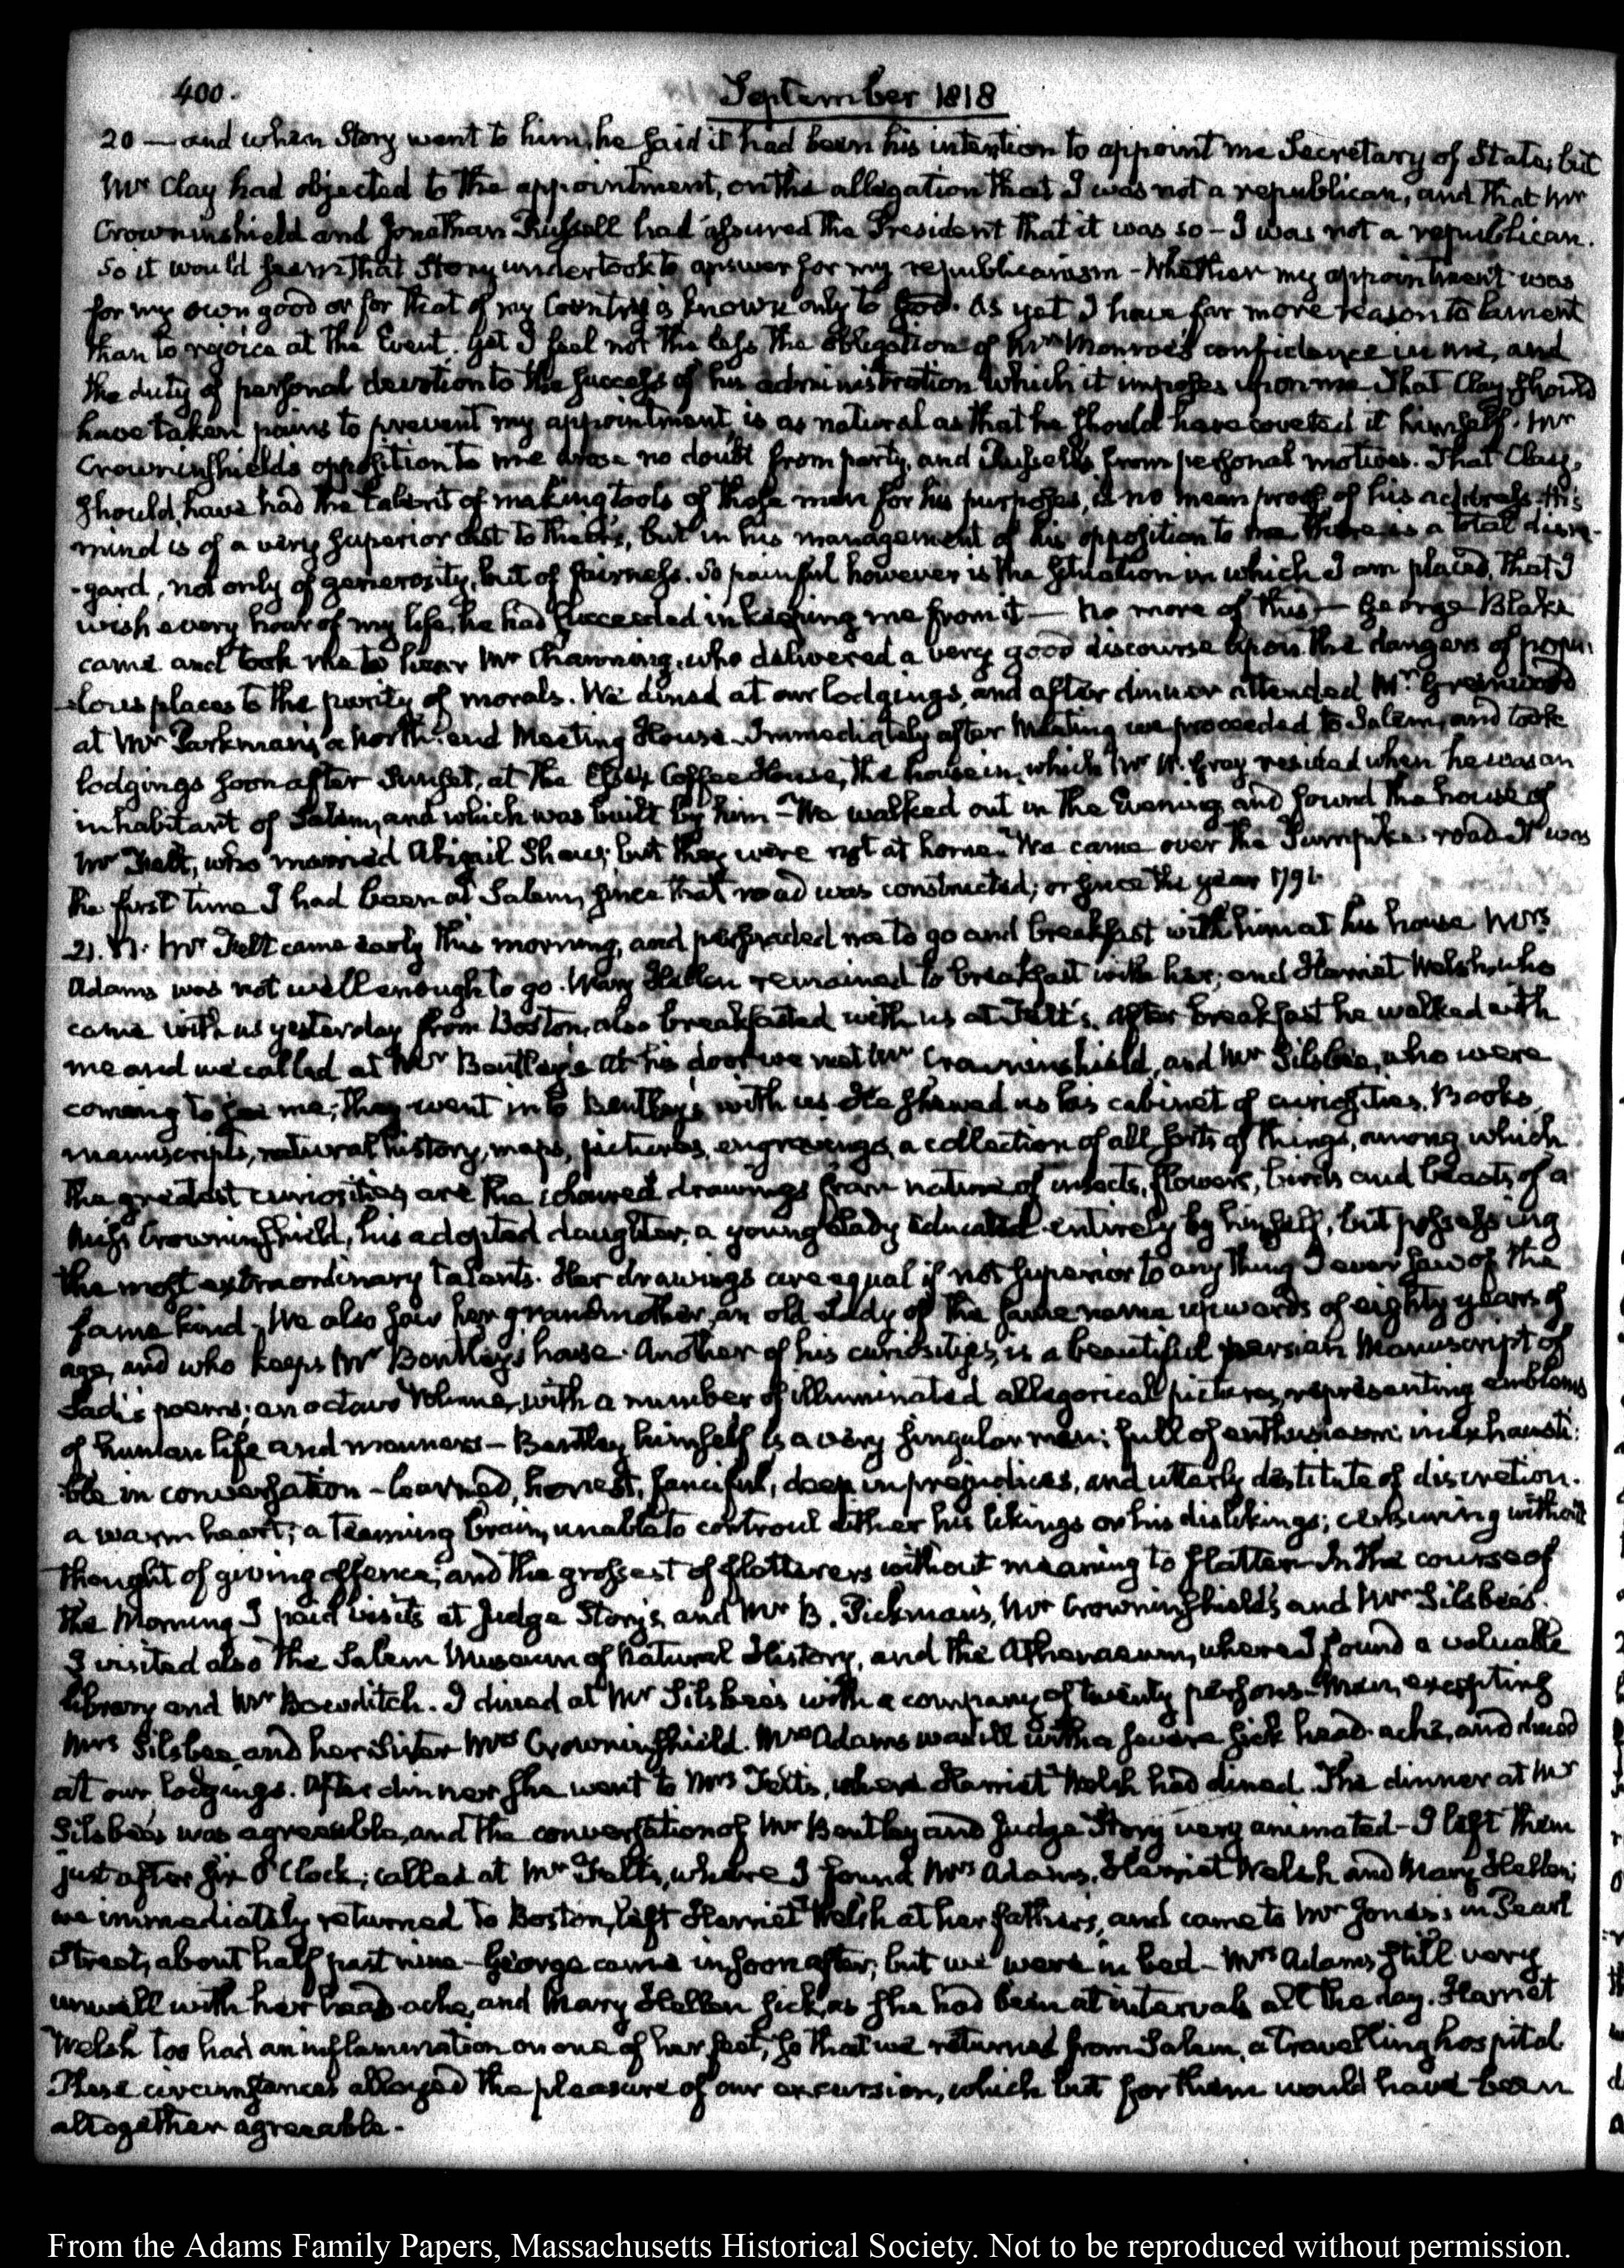 400.
September 1818
20 — and when Story went to him, he said it had been his intention to appoint me Secretary of State; but
Mr Clay had objected to the appointment, on the allegation that I was not a republican, and that Mr
Crowninshield and Jonathan Russell had assured the President that it was so – I was not a republican.
So it would seem that Story undertook to answer for my republicanism – Whether my appointment was
for my own good or for that of my Country is known only to God. As yet I have far more reason to lament
than to rejoice at the Event. Yet I feel not the less the obligation of Mr Monroe's confidence in me, and
the duty of personal devotion to the success of his administration which it imposes upon me. That Clay should
have taken pains to prevent my appointment, is as natural as that he should have coveted it himself. Mr
Crowninshield's opposition to me arose no doubt from party, and Russell's from personal motives. That Clay,
should, have had the talent of making tools of those men for his purposes, is no mean proof of his address. His
mind is of a very superior cast to theirs, but in his management of his opposition to me there is a total disre-
-gard, not only of generosity, but of fairness. So painful however is the situation in which I am placed, that I
wish every hour of my life, he had succeeded in keeping me from it — No more of this — George Blake
came and took me to hear Mr Channing, who delivered a very good discourse upon the dangers of popu-
-lous places to the purity of morals. We dined at our lodgings, and after dinner attended Mr Greenwood
at Mr Parkman's, a North-end Meeting House. Immediately after Meeting we proceeded to Salem, and took
lodgings soon after Sunset, at the Essex Coffee House, the house in which Mr W. Gray resided when he was an
inhabitant of Salem, and which was built by him – We walked out in the Evening and found the house of
Mr Felt, who married Abigail Shaw; but they were not at home. We came over the Turnpike road. It was
the first time I had been at Salem, since that road was constructed; or since the year 1791.
21. VI. Mr Felt came early this morning, and persuaded me to go and breakfast with him at his house Mrs
Adams was not well enough to go. Mary Hellen remained to breakfast with her; and Harriet Welsh, who
came with us yesterday from Boston, also breakfasted with us at Felt's. After breakfast he walked with
me and we called at Mr Bentley's at his door we met Mr Crowninshield, and Mr Silsbee, who were
coming to see me; they went in to Bentley's with us. He shewed us his cabinet of curiosities. Books,
manuscripts, natural history, maps, pictures, engravings, a collection of all sorts of things, among which
the greatest curiosities are the coloured drawings from nature of insects, flowers, birds and beasts, of a
Miss Crowninshield, his adopted daughter; a young Lady educated entirely by himself, but possessing
the most extraordinary talents. Her drawings are equal if not superior to any thing I ever saw of the
same kind. We also saw her grandmother, an old Lady of the same name upwards of eighty years of
age, and who keeps Mr Bentley's house. Another of his curiosities, is a beautiful persian Manuscript of
Sadi's poems; an octavo Volume, with a number of illuminated allegorical pictures, representing emblems
of human life and manners – Bentley himself is a very singular man; full of enthusiasm; inexhausti-
ble in conversation – learned, honest, fanciful, deep in prejudices, and utterly destitute of discretion.
a warm heart; a teeming brain, unable to controul either his likings or his dislikings; censuring without
thought of giving offence; and the grossest of flatterers without meaning to flatter. In the course of
the Morning I paid visits at Judge Story's, and Mr B. Pickman's, Mr Crowninshield's and Mr Silsbee's.
I visited also the Salem Museum of Natural History, and the Athenaeum, where I found a valuable
library and Mr Bowditch. I dined at Mr Silsbee's with a company of twenty persons – Men, excepting
Mrs Silsbee and her Sister Mrs Crowninshield. Mrs Adams was ill with a severe sick head-ache, and dined
at our lodgings. After dinner she went to Mrs Felt's, where Harriet Welsh had dined. The dinner at Mr
Silsbee's was agreeable, and the conversation of Mr Bentley and Judge Story very animated – I left them
just after six O'Clock; called at Mr Felt's, where I found Mrs Adams, Harriet Welsh and Mary Hellen;
we immediately returned to Boston, left Harriet Welsh at her father's, and came to Mr Jones's in Pearl
Street, about half past nine – George came in soon after, but we were in bed – Mrs Adams still very
unwell with her head-ache, and Mary Hellen sick, as she had been at intervals all the day. Harriet
Welsh too had an inflammation on one of her feet, so that we returned from Salem, a travelling hospital
These circumstances alloyed the pleasure of our excursion, which but for them would have been
altogether agreeable.
From the Adams Family Papers, Massachusetts Historical Society. Not to be reproduced without permission.